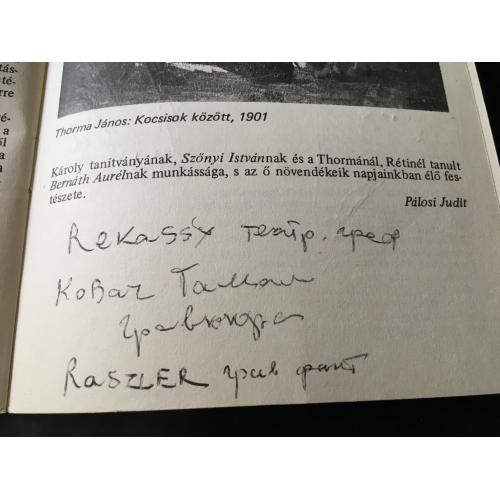 tás-
té-
rre
vé-
a
ől
a
a
Thorma János: Kocsisok között, 1901
Károly tanítványának, Szőnyi Istvánnak és a Thormánál, Rétinél tanult
Bernáth Aurélnak munkássága, s az ő növendékeik napjainkban élő fes-
tészete.
Pálosi Judit
REKASSY
RASZLER